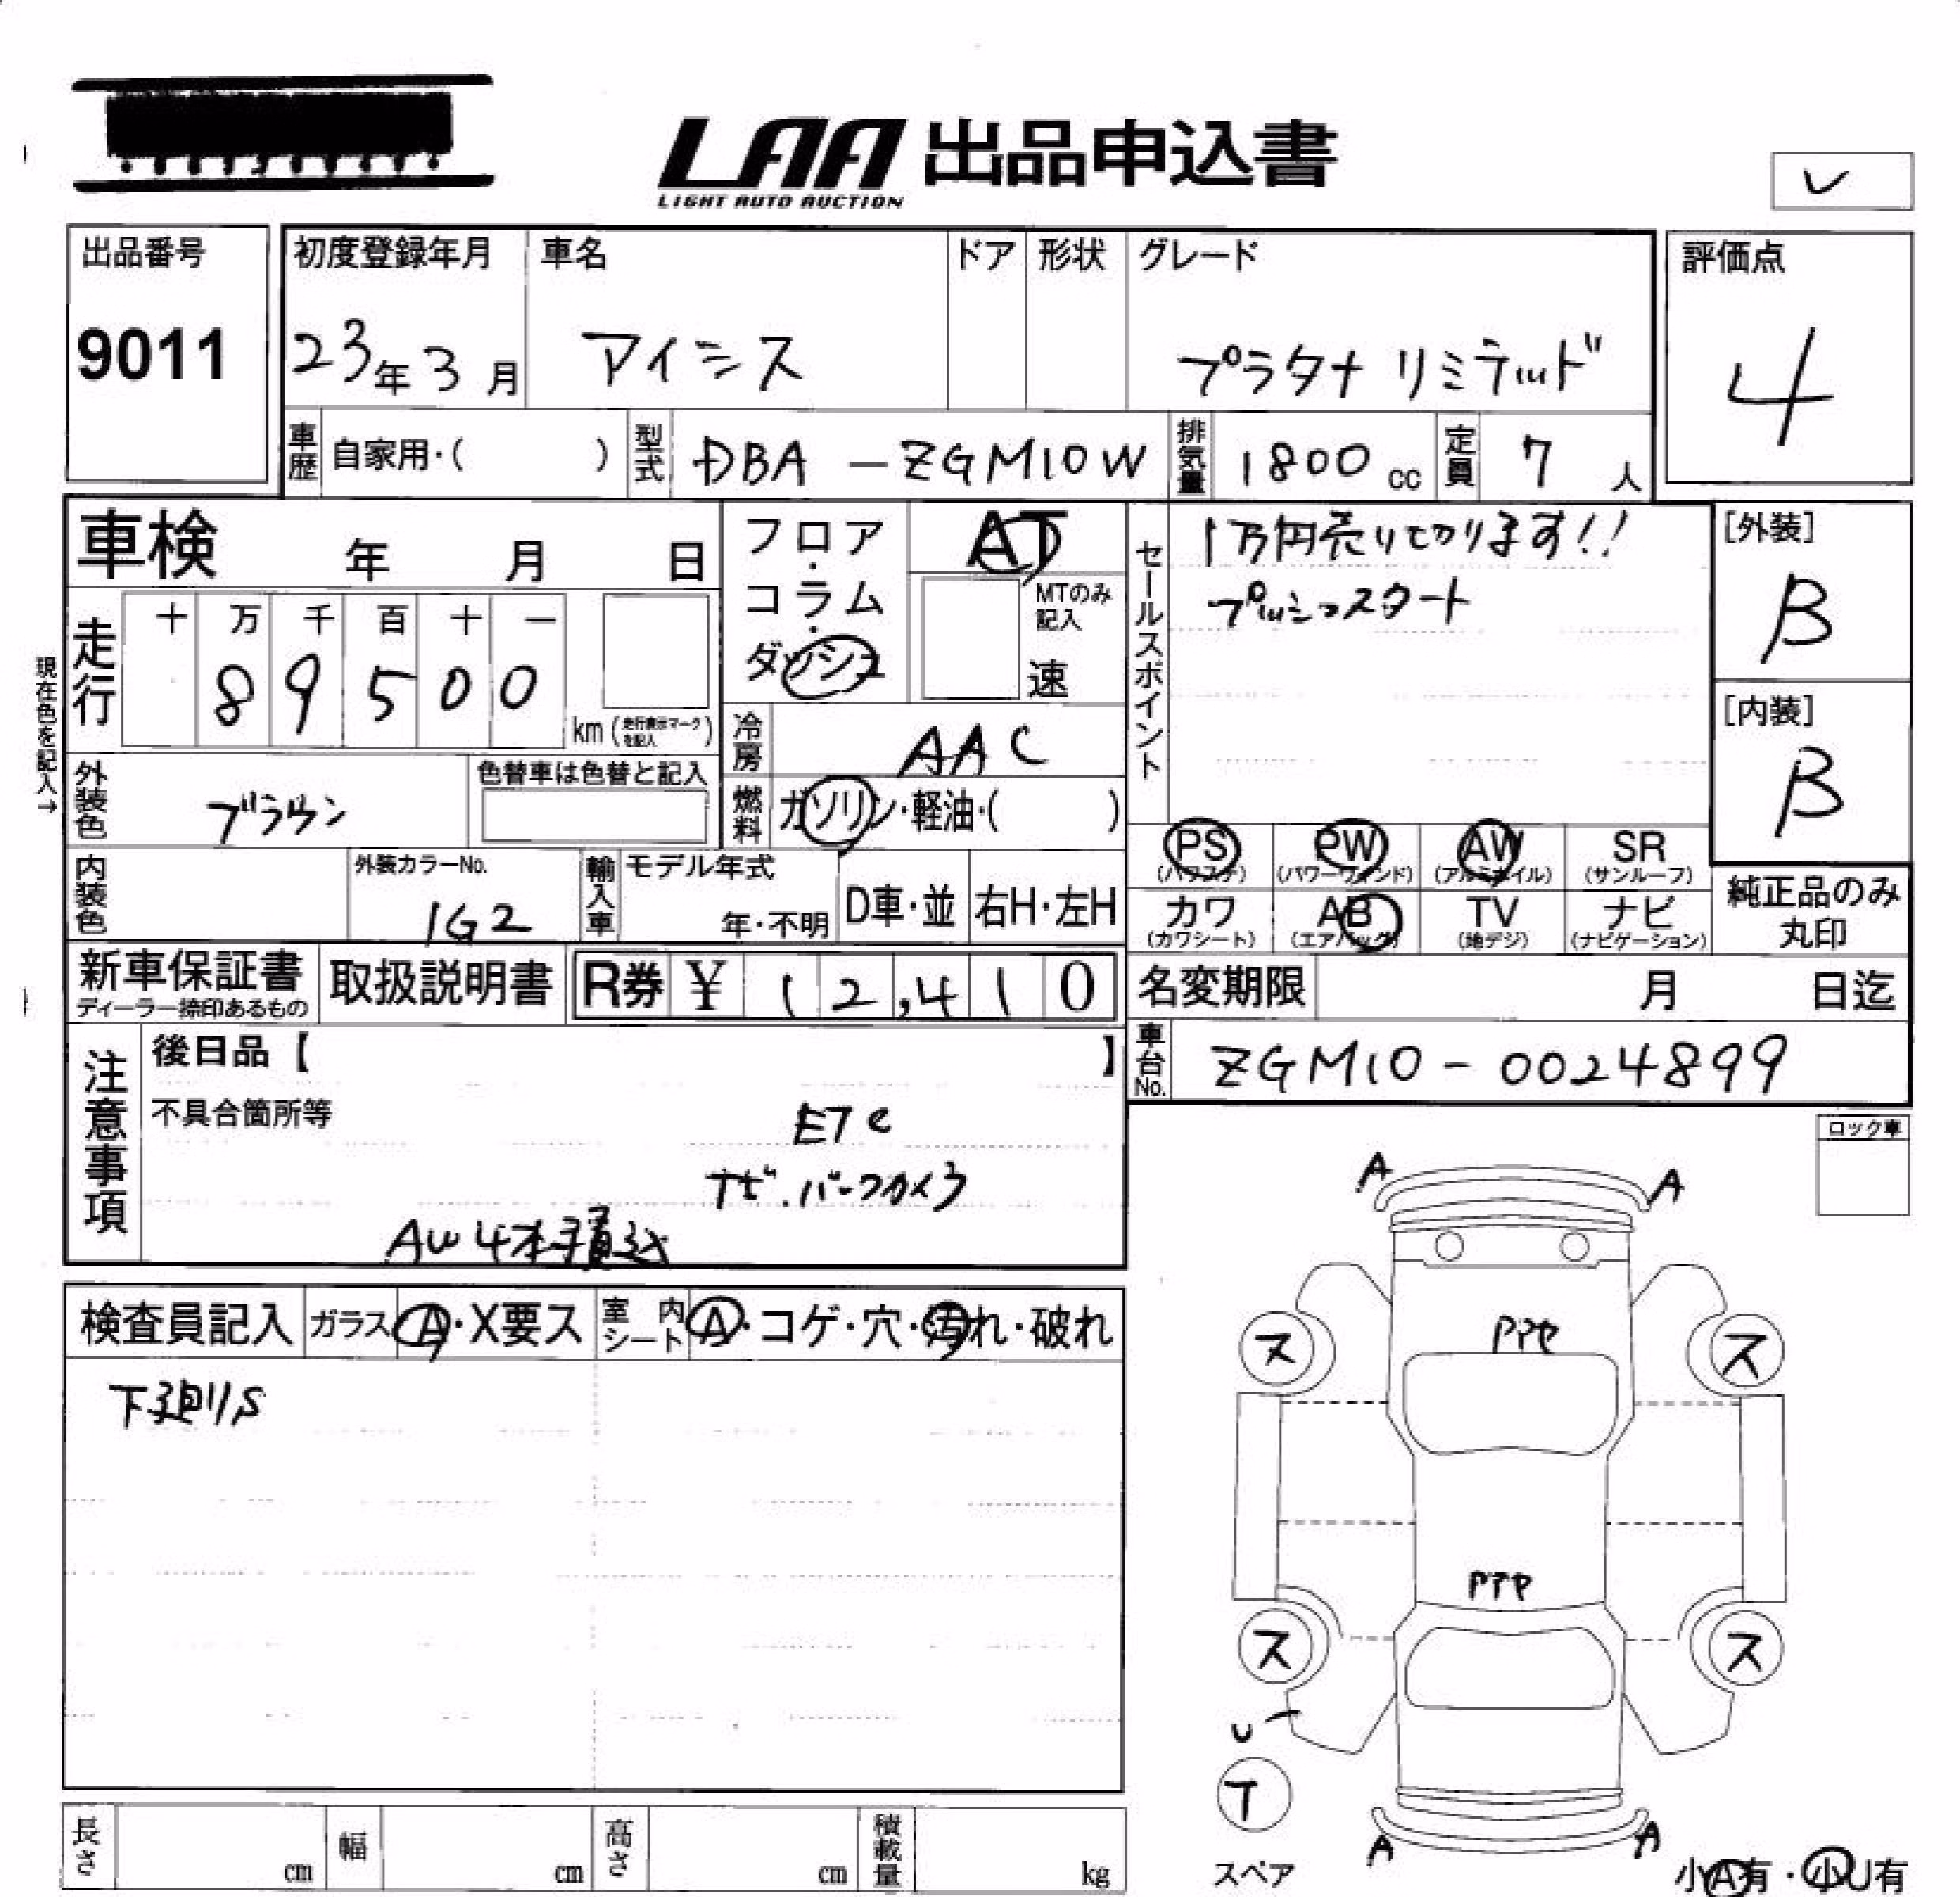 LAA 出品申込書
LIGHT AUTO AUCTION
レ
出品番号
9011
初度登録年月
23年3月
車名
アイシス
ドア
形状
グレード
プラタナ リミテッド
評価点
4
車歴 自家用・( )
型式 DBA-ZGM10W
排気量 1800cc
定員 7人
車検 年 月 日
フロア・コラム・ダッシュ
AT
MTのみ記入
速
セールスポイント
1万円売り切ります!!
プッシュスタート
[外装]
B
[内装]
B
現在色を記入→
走行
十 万 千 百 十 一
8 9 5 0 0
km (走行表示マークを記入)
冷房 AAC
外装色 ブラウン
色替車は色替と記入
燃料 ガソリン・軽油・( )
PS (パワステ)
PW (パワーウィンド)
AW (アルミホイル)
SR (サンルーフ)
内装色
外装カラーNo.
1G2
輸入車
モデル年式
年・不明
D車・並
右H・左H
カワ (カワシート)
AB (エアバッグ)
TV (地デジ)
ナビ (ナビゲーション)
純正品のみ
丸印
新車保証書
ディーラー捺印あるもの
取扱説明書
R券 ¥ 12,410
名変期限 月 日迄
車台No. ZGM10-0024899
注意事項
後日品【 】
不具合箇所等
ETC
ナビ.バックカメラ
AW4本積込
ロック車
検査員記入
ガラス A・X要ス
室内シート A・コゲ・穴・汚れ・破れ
下廻りS
A A
ス ス
ス ス
U
T
スペア
A A
小A有・小U有
長さ cm
幅 cm
高さ cm
積載量 kg